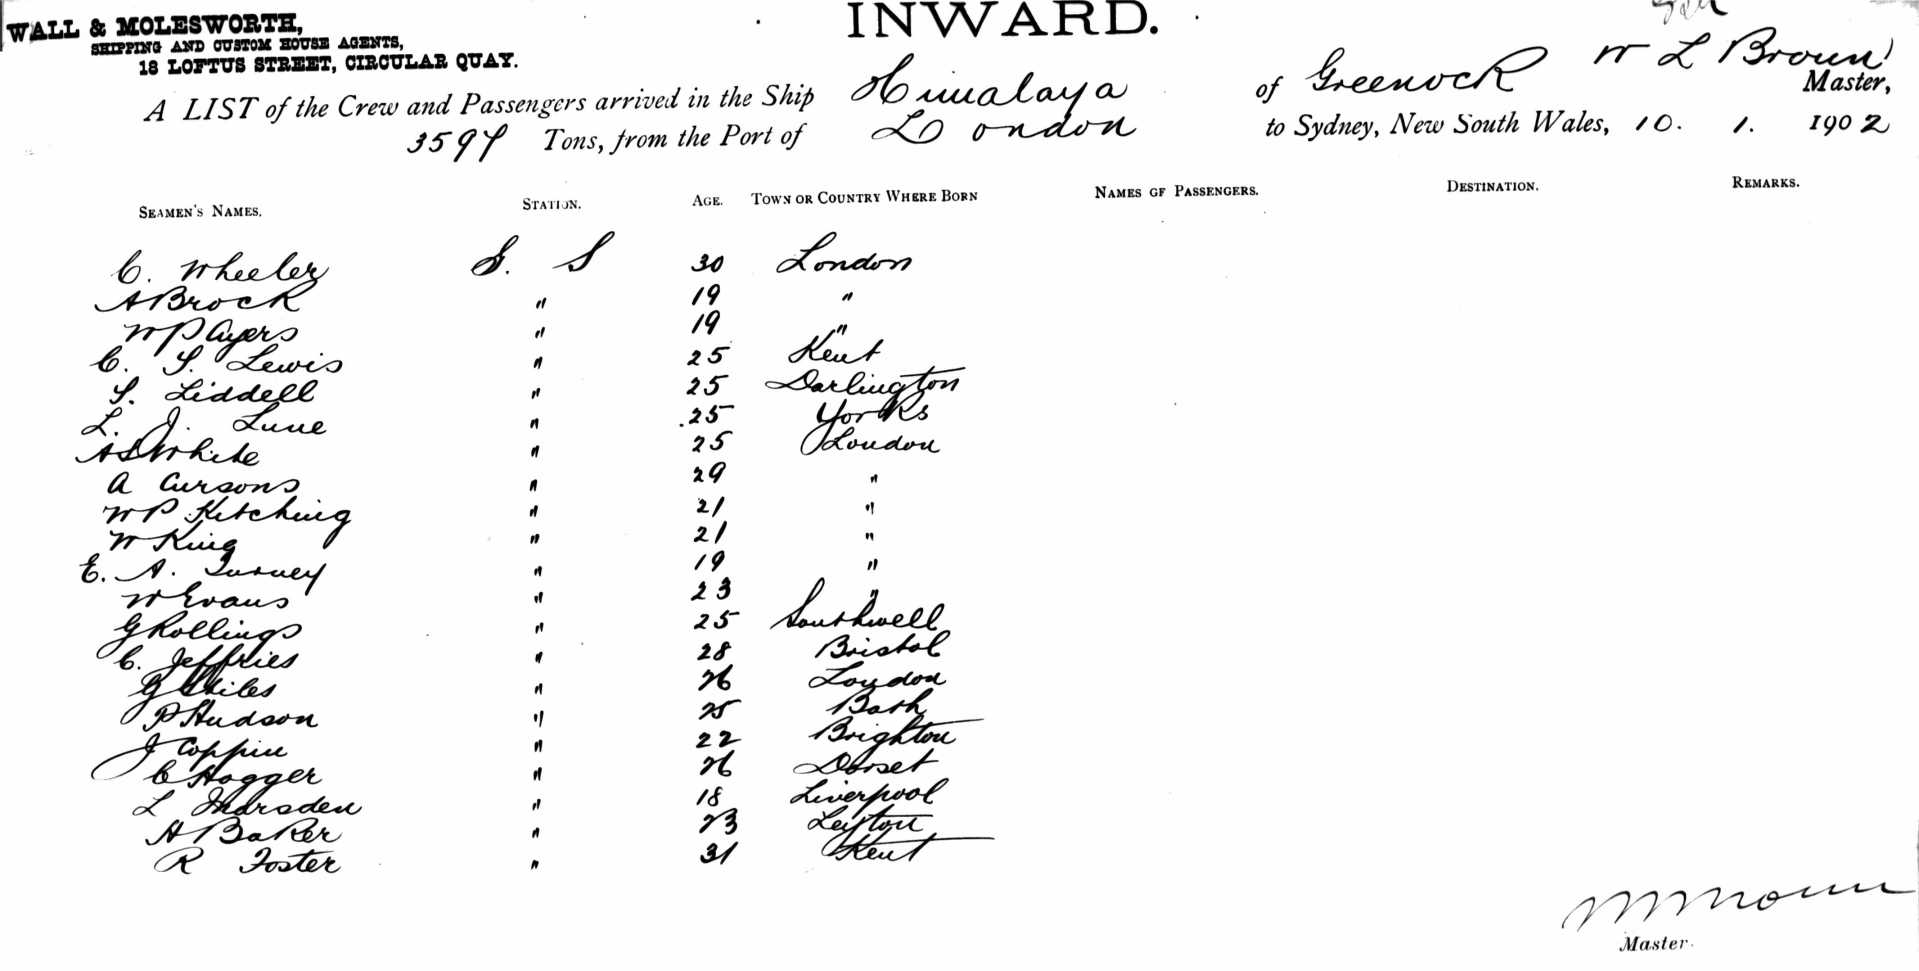 WALL & MOLESWORTH,
SHIPPING AND CUSTOM HOUSE AGENTS,
18 LOFTUS STREET, CIRCULAR QUAY.
INWARD.
W L Broun
A LIST of the Crew and Passengers arrived in the Ship Himalaya of Greenock Master,
3597 Tons, from the Port of London to Sydney, New South Wales, 10. 1. 1902
SEAMEN'S NAMES. STATION. AGE. TOWN OR COUNTRY WHERE BORN NAMES OF PASSENGERS. DESTINATION. REMARKS.
C. Wheeler G. S 30 London
A Brock " 19 "
W P Ayers " 19 "
C. S. Lewis " 25 Kent
S. Liddell " 25 Darlington
L. J. Lune " 25 Yorks
A S White " 25 London
A Cursons " 29 "
W P Kitching " 21 "
W King " 21 "
E. A. Turney " 19 "
W Evans " 23 "
G Rollings " 25 Southwell
C. Jeffries " 28 Bristol
G Stiles " 26 London
P Hudson " 25 Bath
J Coppin " 22 Brighton
C Hogger " 26 Dorset
L Marsden " 18 Liverpool
H Baker " 23 Leyton
R Foster " 31 Kent
Master.